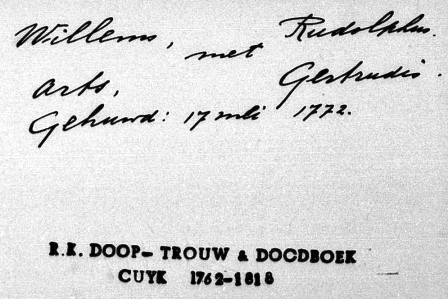 Willems, met Rudolphus.
Arts, Gertrudis.
Gehuwd: 17 mei 1772.
R.K. DOOP- TROUW & DOODBOEK
CUYK 1762-1818